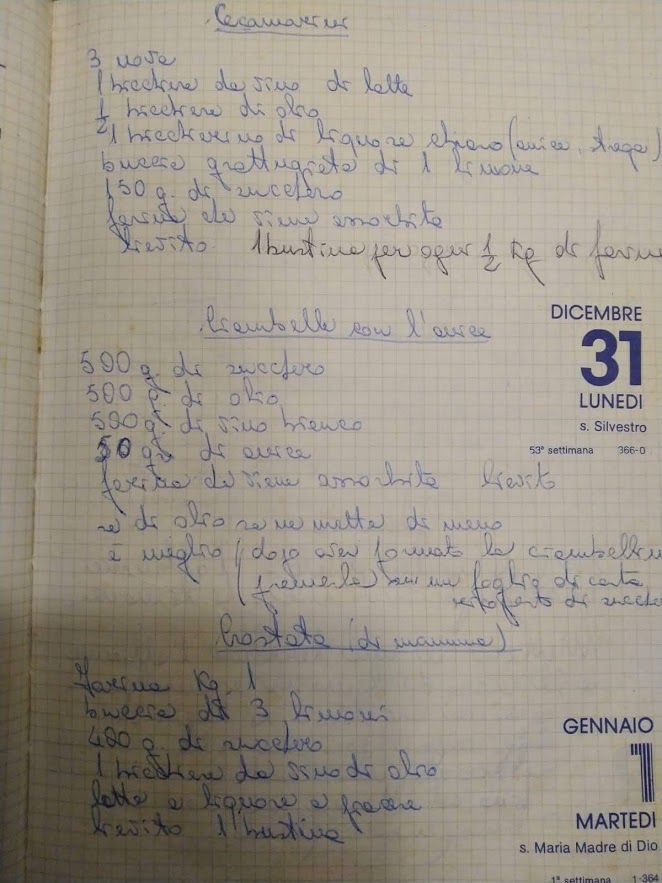 Ceciamarini
3 uova
1 bicchiere da vino di latte
1/2 bicchiere di olio
1 bicchierino di liquore chiaro (anice, strega)
buccia grattugiata di 1 limone
150 g. di zucchero
farina che viene assorbita
lievito 1 bustina per ogni 1/2 Kg di farina
Ciambelle con l'anice
DICEMBRE
31
LUNEDI
s. Silvestro
53ª settimana 366-0
500 g. di zucchero
500 g. di olio
500 g. di vino bianco
50 g. di anice
farina che viene assorbita lievito
se di olio se ne mette di meno
è meglio (dopo aver formato le ciambelline
(premerle su un foglio di carta
ricoperto di zucchero
Crostata (di mamma)
Farina Kg. 1
buccia di 3 limoni
400 g. di zucchero
1 bicchiere da vino di olio
latte e liquore a piacere
lievito 1 bustina
GENNAIO
1
MARTEDI
s. Maria Madre di Dio
1ª settimana 1-364